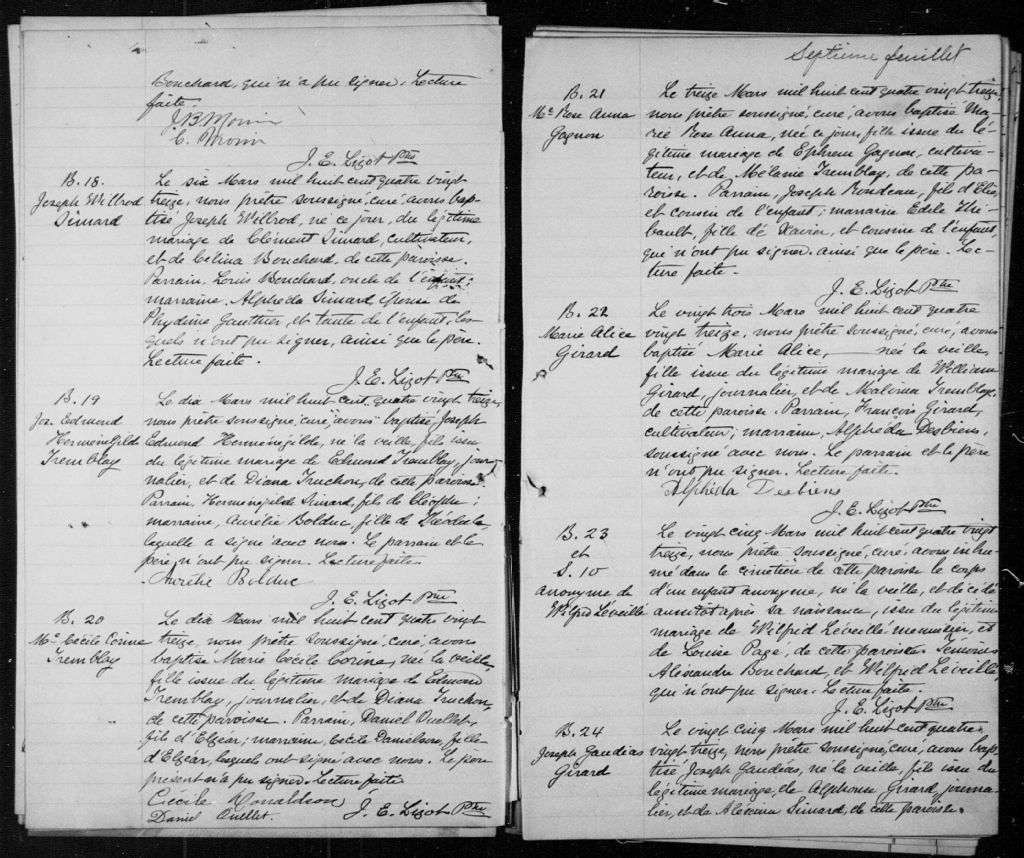 Bouchard, qui n'a pu signer. Lecture
faite.
J. B. Morin
E. Morin
J. E. Lizot Ptre
B. 18.
Joseph Willrod
Simard
Le six Mars mil huit cent quatre vingt
treize, nous prêtre soussigné, curé, avons bap-
tisé Joseph Willrod, né ce jour, du légitime
mariage de Clément Simard, cultivateur,
et de Celina Bouchard, de cette paroisse.
Parrain, Louis Bouchard, oncle de l'enfant;
marraine, Alphéda Simard épouse de
Phydime Gauthier, et tante de l'enfant, les-
quels n'ont pu signer, ainsi que le père.
Lecture faite.
J. E. Lizot Ptre
B. 19
Jos. Edmond
Herménégilde
Tremblay
Le dix Mars mil huit cent quatre vingt treize,
nous prêtre soussigné, curé, avons baptisé, Joseph
Edmond Herménégilde, né la veille, fils issu
du légitime mariage de Edmond Tremblay, jour-
nalier, et de Diana Truchon, de cette paroisse.
Parrain, Herménégilde Simard, fils de Cléophe;
marraine, Aurélie Bolduc, fille de
laquelle a signé avec nous. Le parrain et le
père n'ont pu signer. Lecture faite.
Aurélie Bolduc
J. E. Lizot Ptre
B. 20
Me Cécile Corine
Tremblay
Le dix Mars mil huit cent quatre vingt
treize, nous prêtre soussigné, curé, avons
baptisé Marie Cécile Corine, née la veille,
fille issue du légitime mariage de Edmond
Tremblay, journalier, et de Diana Truchon,
de cette paroisse. Parrain, Daniel Ouellet,
fils d'Elzéar; marraine, Cécile Danielson, fille
d'Elzéar, lesquels ont signé avec nous. Le père
présent n'a pu signer. Lecture faite
Cécile Donaldson
J. E. Lizot Ptre
Daniel Ouellet.
Septième feuillet
B. 21
Me Rose Anna
Gagnon
Le treize Mars mil huit cent quatre vingt treize,
nous prêtre soussigné, curé, avons baptisé Ma-
rie Rose Anna, née ce jour, fille issue du lé-
gitime mariage de Ephrem Gagnon, cultiva-
teur, et de Mélanie Tremblay, de cette pa-
roisse. Parrain, Joseph Rondeau, fils d'Elie
et cousin de l'enfant; marraine Edile Thi-
bault, fille de Xavier, et cousine de l'enfant,
qui n'ont pu signer ainsi que le père. Lec-
ture faite.
J. E. Lizot Ptre
B. 22
Marie Alice
Girard
Le vingt trois Mars mil huit cent quatre
vingt treize, nous prêtre soussigné, curé, avons
baptisé Marie Alice, née la veille,
fille issue du légitime mariage de William
Girard, journalier, et de Malvina Tremblay,
de cette paroisse. Parrain, François Girard,
cultivateur; marraine, Alphéda Desbiens,
soussigné avec nous. Le parrain et le père
n'ont pu signer. Lecture faite.
Alphéda Desbiens
J. E. Lizot Ptre
B. 23
et
S. 10
anonyme de
Wilfrid Léveillé
Le vingt cinq Mars mil huit cent quatre vingt
treize, nous prêtre soussigné, curé, avons inhu-
mé dans le cimetière de cette paroisse le corps
d'un enfant anonyme, né la veille, et décédé
aussitôt après sa naissance, issu du légitime
mariage de Wilfrid Léveillé menuisier, et
de Louise Page, de cette paroisse. Témoins
Alexandre Bouchard, et Wilfrid Léveillé,
qui n'ont pu signer. Lecture faite.
J. E. Lizot Ptre
B. 24
Joseph Gaudéas
Girard
Le vingt cinq Mars mil huit cent quatre
vingt treize, nous prêtre soussigné, curé, avons bap-
tisé Joseph Gaudéas, né la veille, fils issu du
légitime mariage de Alphonse Girard, journa-
lier, et de Aléxina Simard, de cette paroisse.